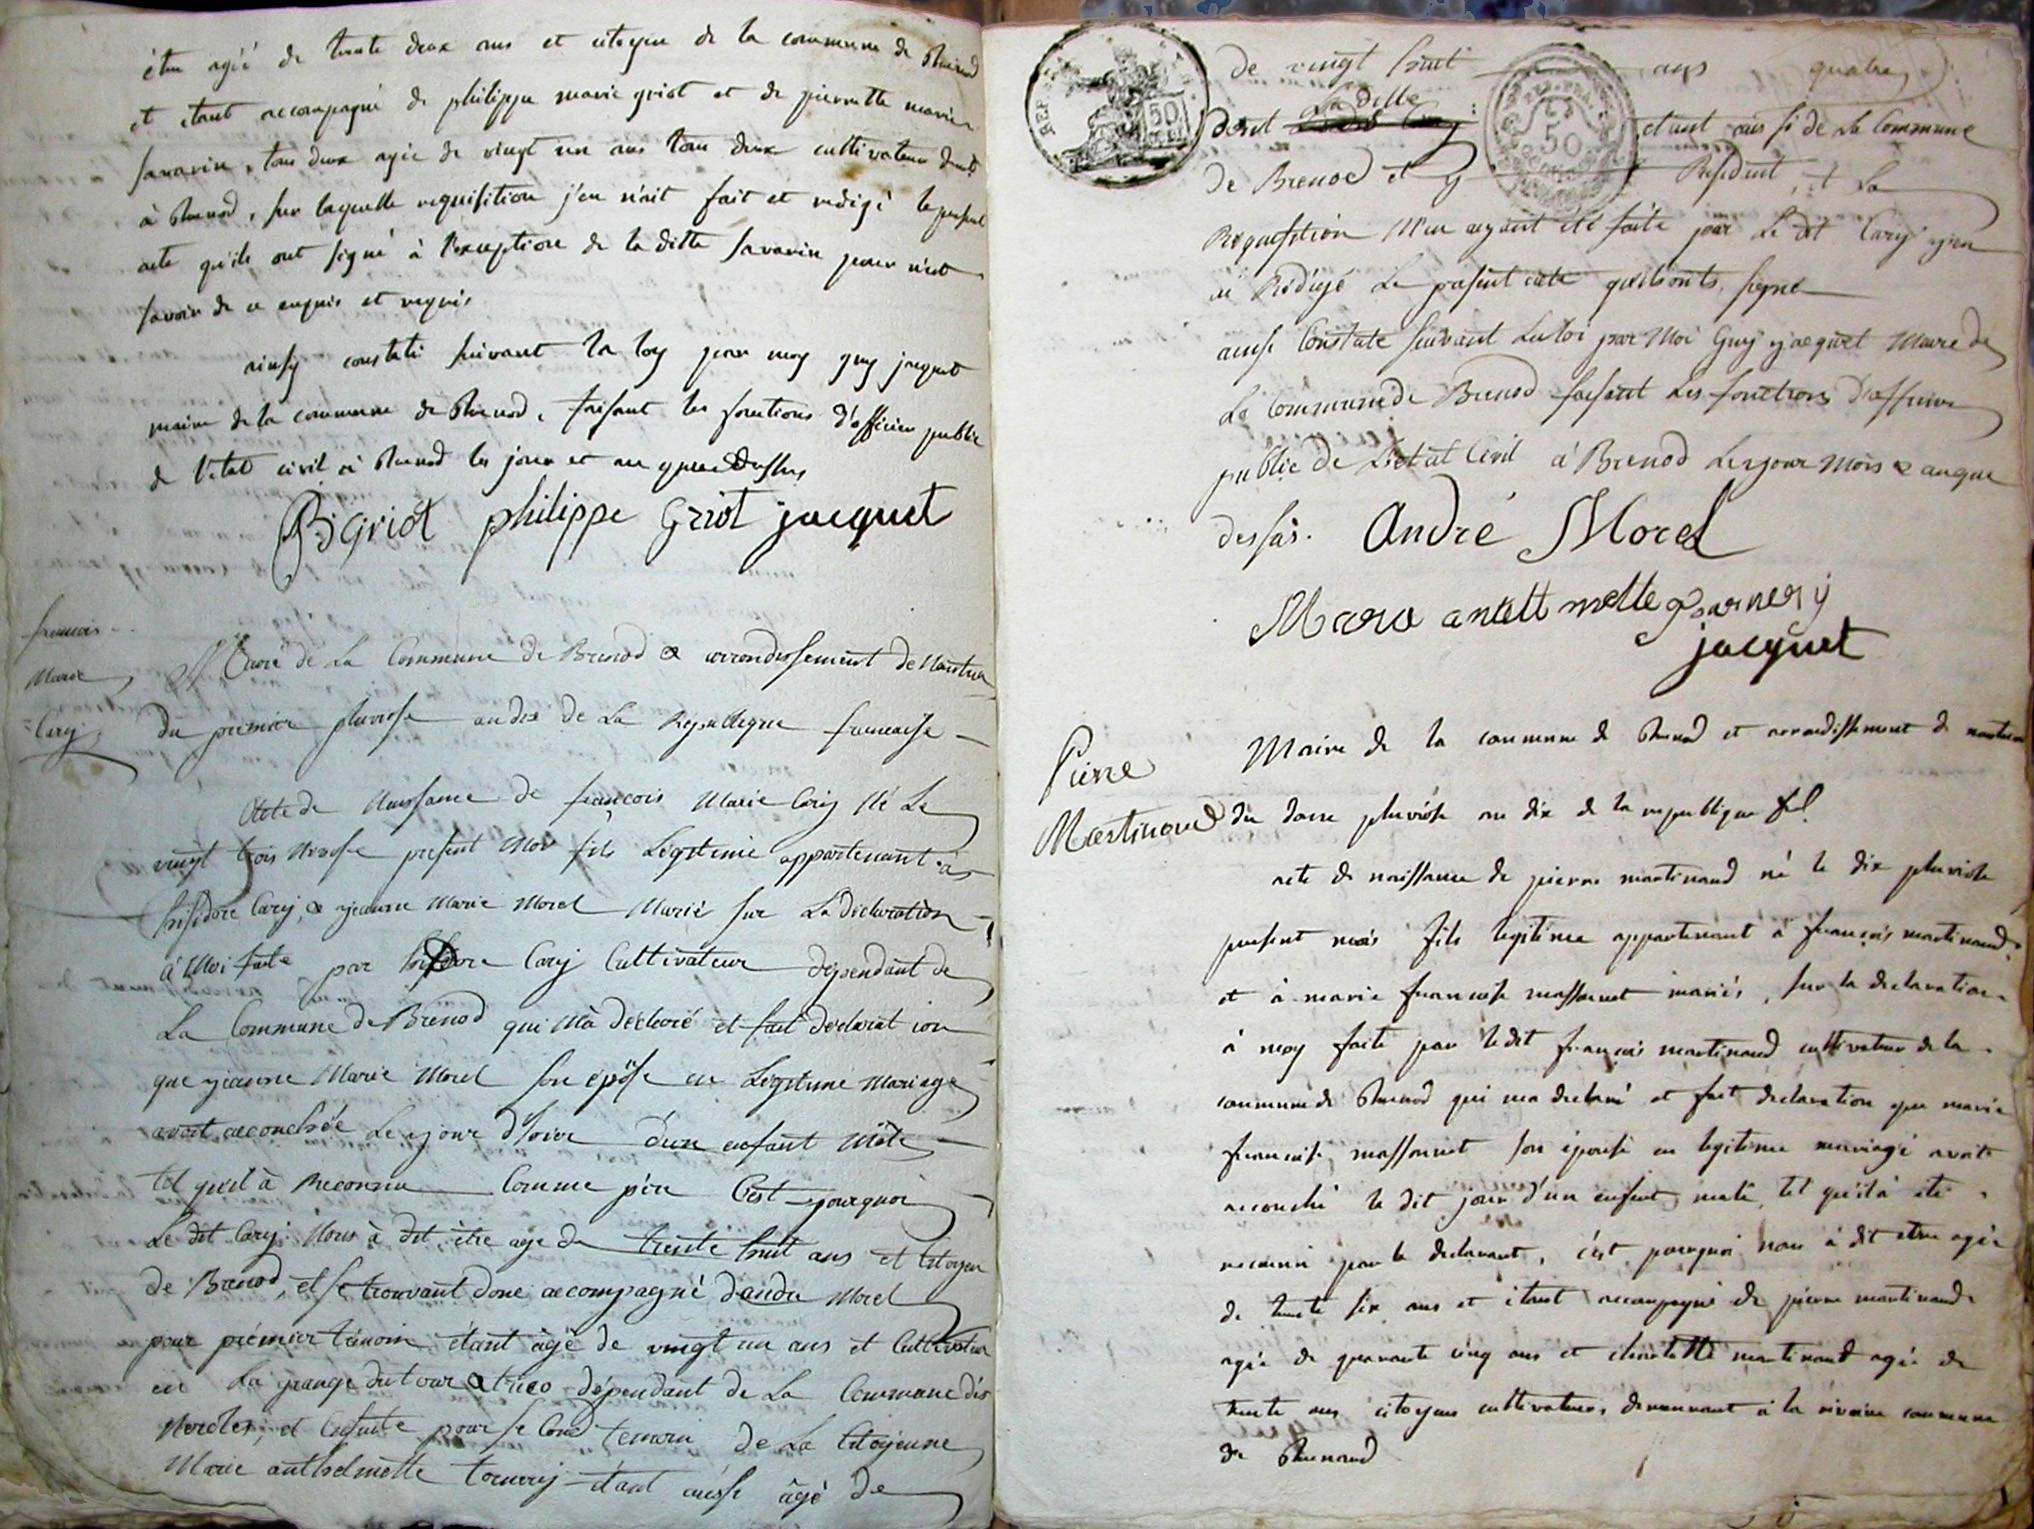 être agée de trente deux ans et citoyen de la commune de Brenod
et etant accompagné de philippe marie griot et de pierrette marie
savarin, tous deux agée de vingt un ans tous deux cultivateur
à Brenod, sur laquelle requisition j'en n'ait fait et redigé le present
acte qu'ils ont signé à l'exeption de la ditte savarin pour n'est
savoir de ce enquis et requis
ainsy constaté suivant la loy par moy guy jacquet
maire de la commune de Brenod, faisant les fonctions d'officier public
de l'etat civil à Brenod les jour et an que Dessus
griot philippe Griot jacquet
francois
Marie
Carij
Mairie de La Commune de Brenod & arrondissement de Nantua
du premier pluviose an dix de La Republique francaise
Acte de Naissance de francois Marie Carij Né Le
vingt trois Nivose present Moi fils Légitime appartenant à
hisidore Carij, & jeanne Marie Morel Marié sur La déclaration
à Moi faite par Carij Cultivateur dépendant de
La Commune de Brenod qui Mà déclaré et fait déclarat ion
que jeanne Marie Morel son epôse en Légitime Mariage
avoit accouchée Le jour d'hier d'un enfant Mâle
tel qu'il à Reconnu Comme père C'est pourquoi
Le dit Carij Nous à dit être age de trente huit ans et Citoyen
de Brenod, et se trouvant donc accompagné dandré Morel
pour prémier témoin étant âgé de vingt un ans et Cultivateur
en La grange du tour dépendant de La Commune dés
Neroles, et Ensuite pour se Cond temoin de La Citoyenne
Marie anthelmette tornerij étant aussi âgé de
de vingt huit ans quatre
La ditte
etant aus si de La Commune
de Brenod et y Residant, et La
Réquisition M'en ayant été faite par Le dit Carij j'en
ai Rédigé Le present acte qu'ils onts signé
ainsi Constaté suivant La loi par Moi Guy jacquet Maire de
La Commune de Brenod faisant Les fonctions D'officier
public de L'état Civil à Brenod Les jour Mois & an que
dessus. André Morel
Marie antelt mette tornerij
jacquet
REP
50
50
Pierre
Martinand
Mairie de la commune de Brenod et arrondissement de nantua
du douze pluviôse an dix de la republique
acte de naissance de pierre martinand né le dix pluviose
present mois fils legitime appartenant à françois martinand
et à marie francoise massonnet mariés, sur la declaration
à moy faite par ledit françois martinand cultivateur de la
commune de Brenod qui m'a declaré et fait declaration que marie
francoise massonnet son épouse en legitime mariage avoit
accouché le dit jour d'un enfent male, tel qu'il à eté
reconnu par le declarant, c'est pourquoi nous à dit etre agée
de trente six ans et étant accompagné de pierre martinand
agée de quarante cinq ans et martinand agée de
trente ans citoyens cultivateurs demeurant à la commune
de Brenod